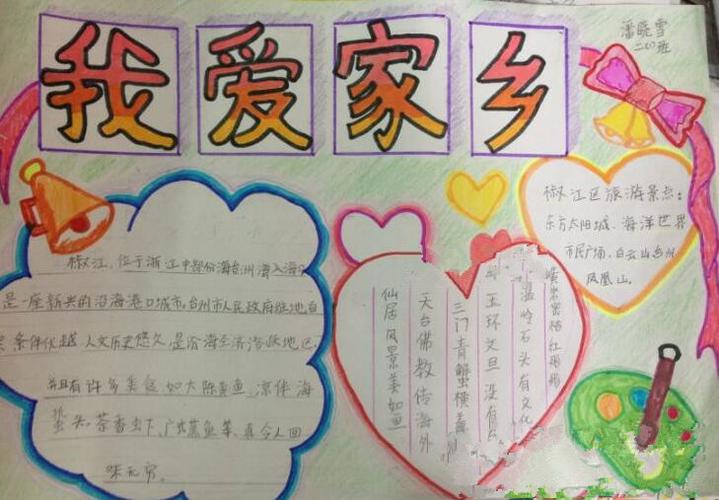 我爱家乡
潘晓雪
二(2)班
椒江区旅游景点:
东方太阳城、海洋世界
市民广场、白云山台州
凤凰山。
椒江,位于浙江中部份海台州湾入海
是一座新兴的沿海港口城市,台州市人民政府驻地,自
条件优越,人文历史悠久,是沿海经济 地区,
并且有许多美食,如大陈黄鱼、凉伴海
蜇头、茶香虾、广式蒸鱼等,真令人回
味无穷。
黄岩蜜桔红彤彤
温岭石头有文化
玉环文旦没有
三门青蟹横着
天台佛教传海外
仙居风景美如画